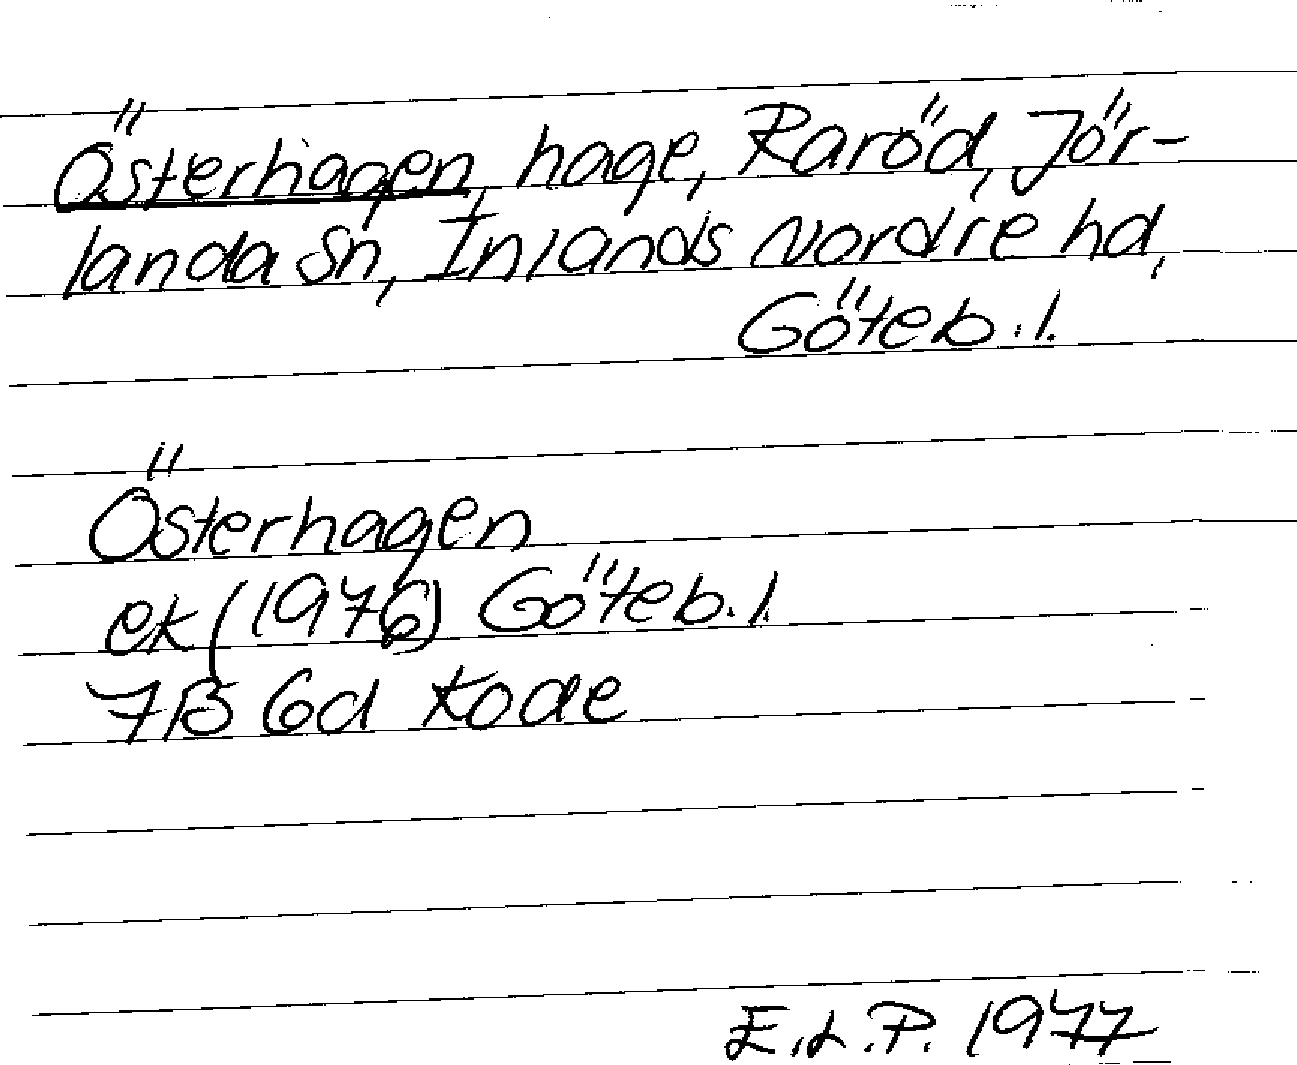 Österhagen, hage, Raröd, Jör-
landa sn, Inlands Nordre hd,
Göteb. l.
Österhagen
ek (1976) Göteb. l.
7B 6d Kode
E.L.P. 1977